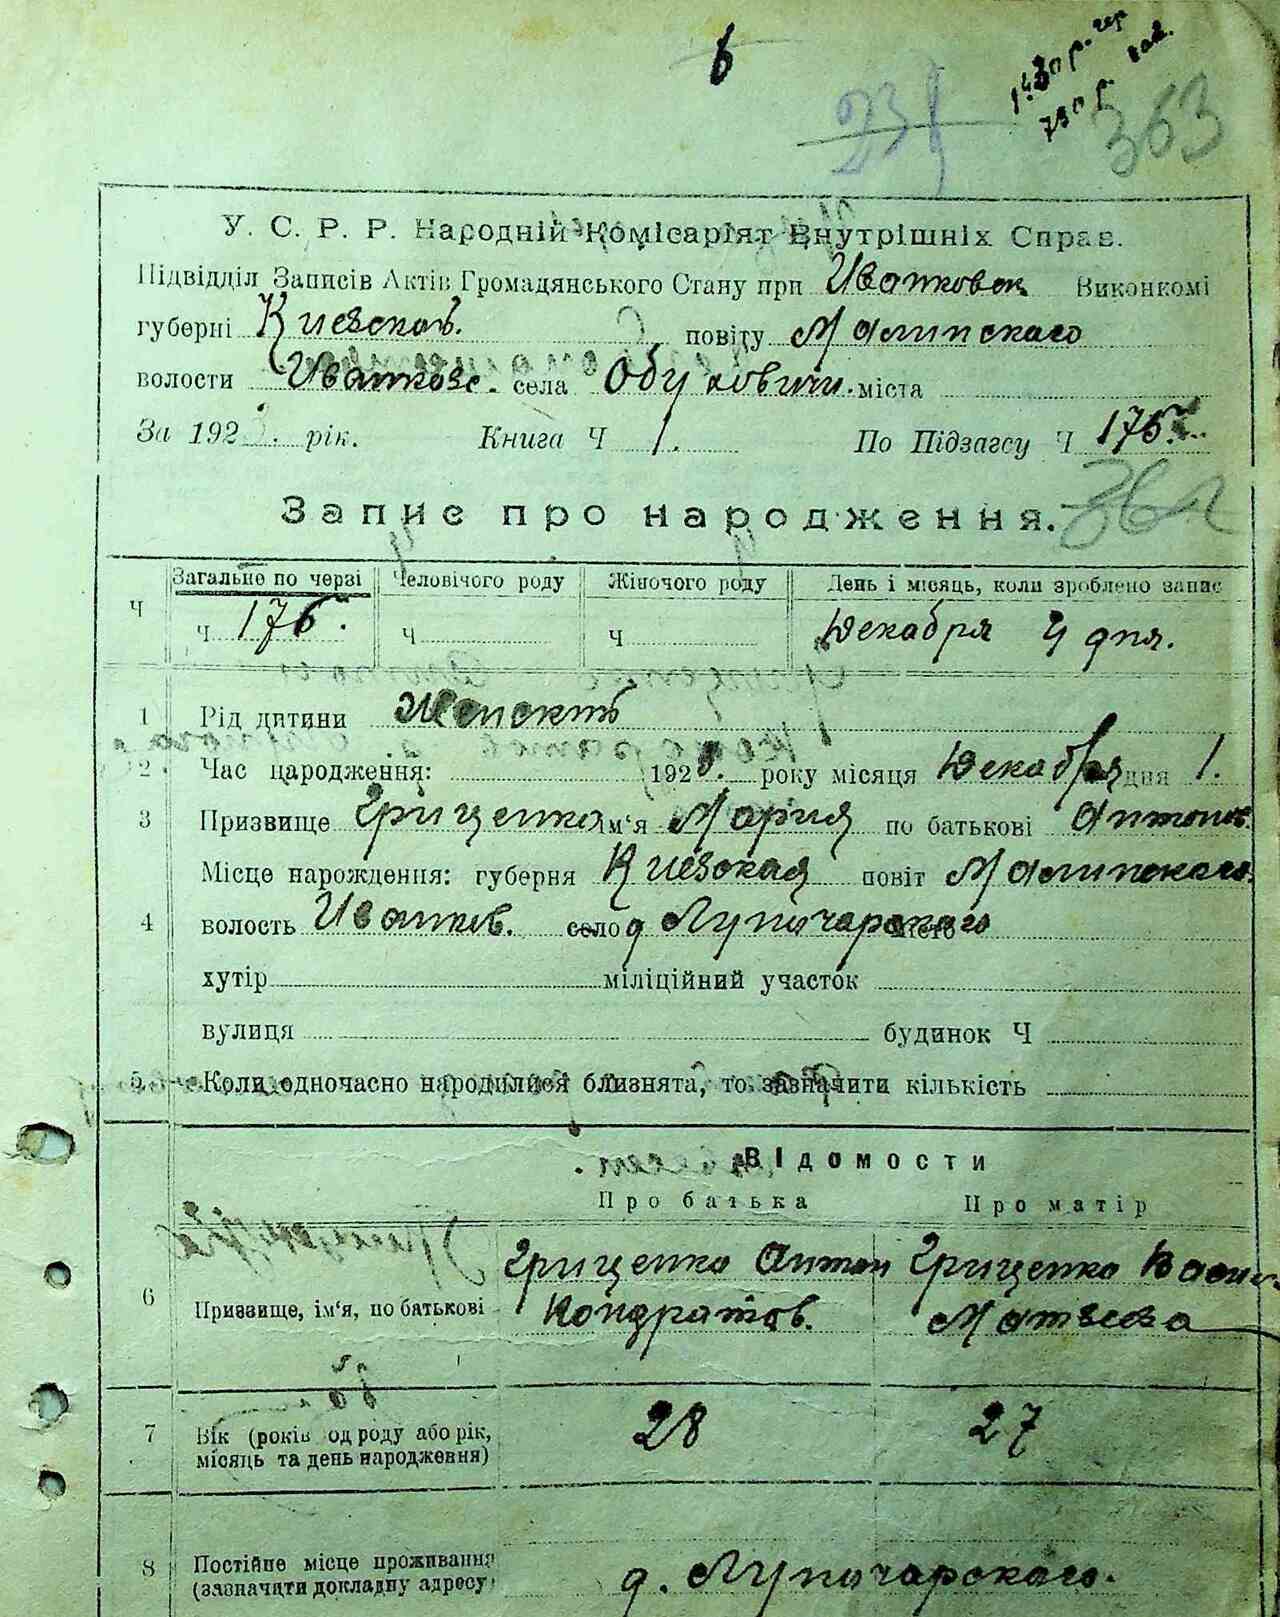 в
231
363
У. С. Р. Р. Народній Комісаріят Внутрішніх Справ.
Підвідділ Записів Актів Громадянського Стану при Иванковск Виконкомі
губерні Киевской. повіту Малинскаго
волости Иванковс. села Обуховичи. міста
За 192 . рік. Книга Ч 1. По Підзагсу Ч 176.
Запис про народження.
Загальне по черзі Человічого роду Жіночого роду День і місяць, коли зроблено запис
Ч Ч 176. Ч Ч Декабря 4 дня.
1 Рід дитини Женскій
2 Час народження: 192 . року місяця Декабря дня 1.
3 Призвище Грищенко ім'я Мария по батькові Антонов.
Місце нарождення: губерня Киевская повіт Малинскаго.
4 волость Иванков. село д Луначарскаго місто
хутір міліційний участок
вулиця будинок Ч
5 Коли одночасно народилися близнята, то зазначити кількість
Відомости
Про батька Про матір
Грищенко Антон Грищенко
6 Призвище, ім'я, по батькові Кондратов. Матвеева
7 Вік (років од роду або рік, 28 27
місяць та день народження)
8 Постійне місце проживання д. Луначарскаго.
(зазначити докладну адресу)